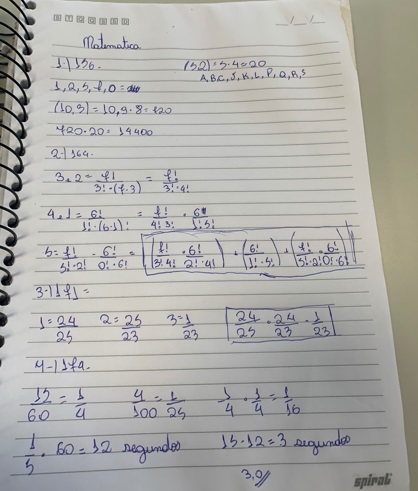 Matematica
1-) 136.
(5,2) = 5·4 = 20
A,B,C,J,K,L,P,Q,R,S
1, 2, 5, 7, 0 =
(10,3) = 10·9·8 = 720
720·20 = 14400
2-) 164.
3 e 2 = 7!/3!·(7-3) = 7!/3!·4!
4 e 1 = 6!/1!·(6-1)! = 7!/4!3! · 6!/1!5!
5 = 7!/5!·2! · 6!/0!·6! = (7!/3!4! · 6!/2!·4!) + (6!/1!·5!) + (7!/5!·2! 6!/0!·6!)
3-) 171 =
1 = 24/25 2 = 25/23 3 = 1/23 24/25 · 24/23 · 1/23
4-) 179.
12/60 = 1/4 4/100 = 1/25 1/4 · 1/4 = 1/16
1/5 · 60 = 12 segundos 15-12 = 3 segundos
3,0//
spiral